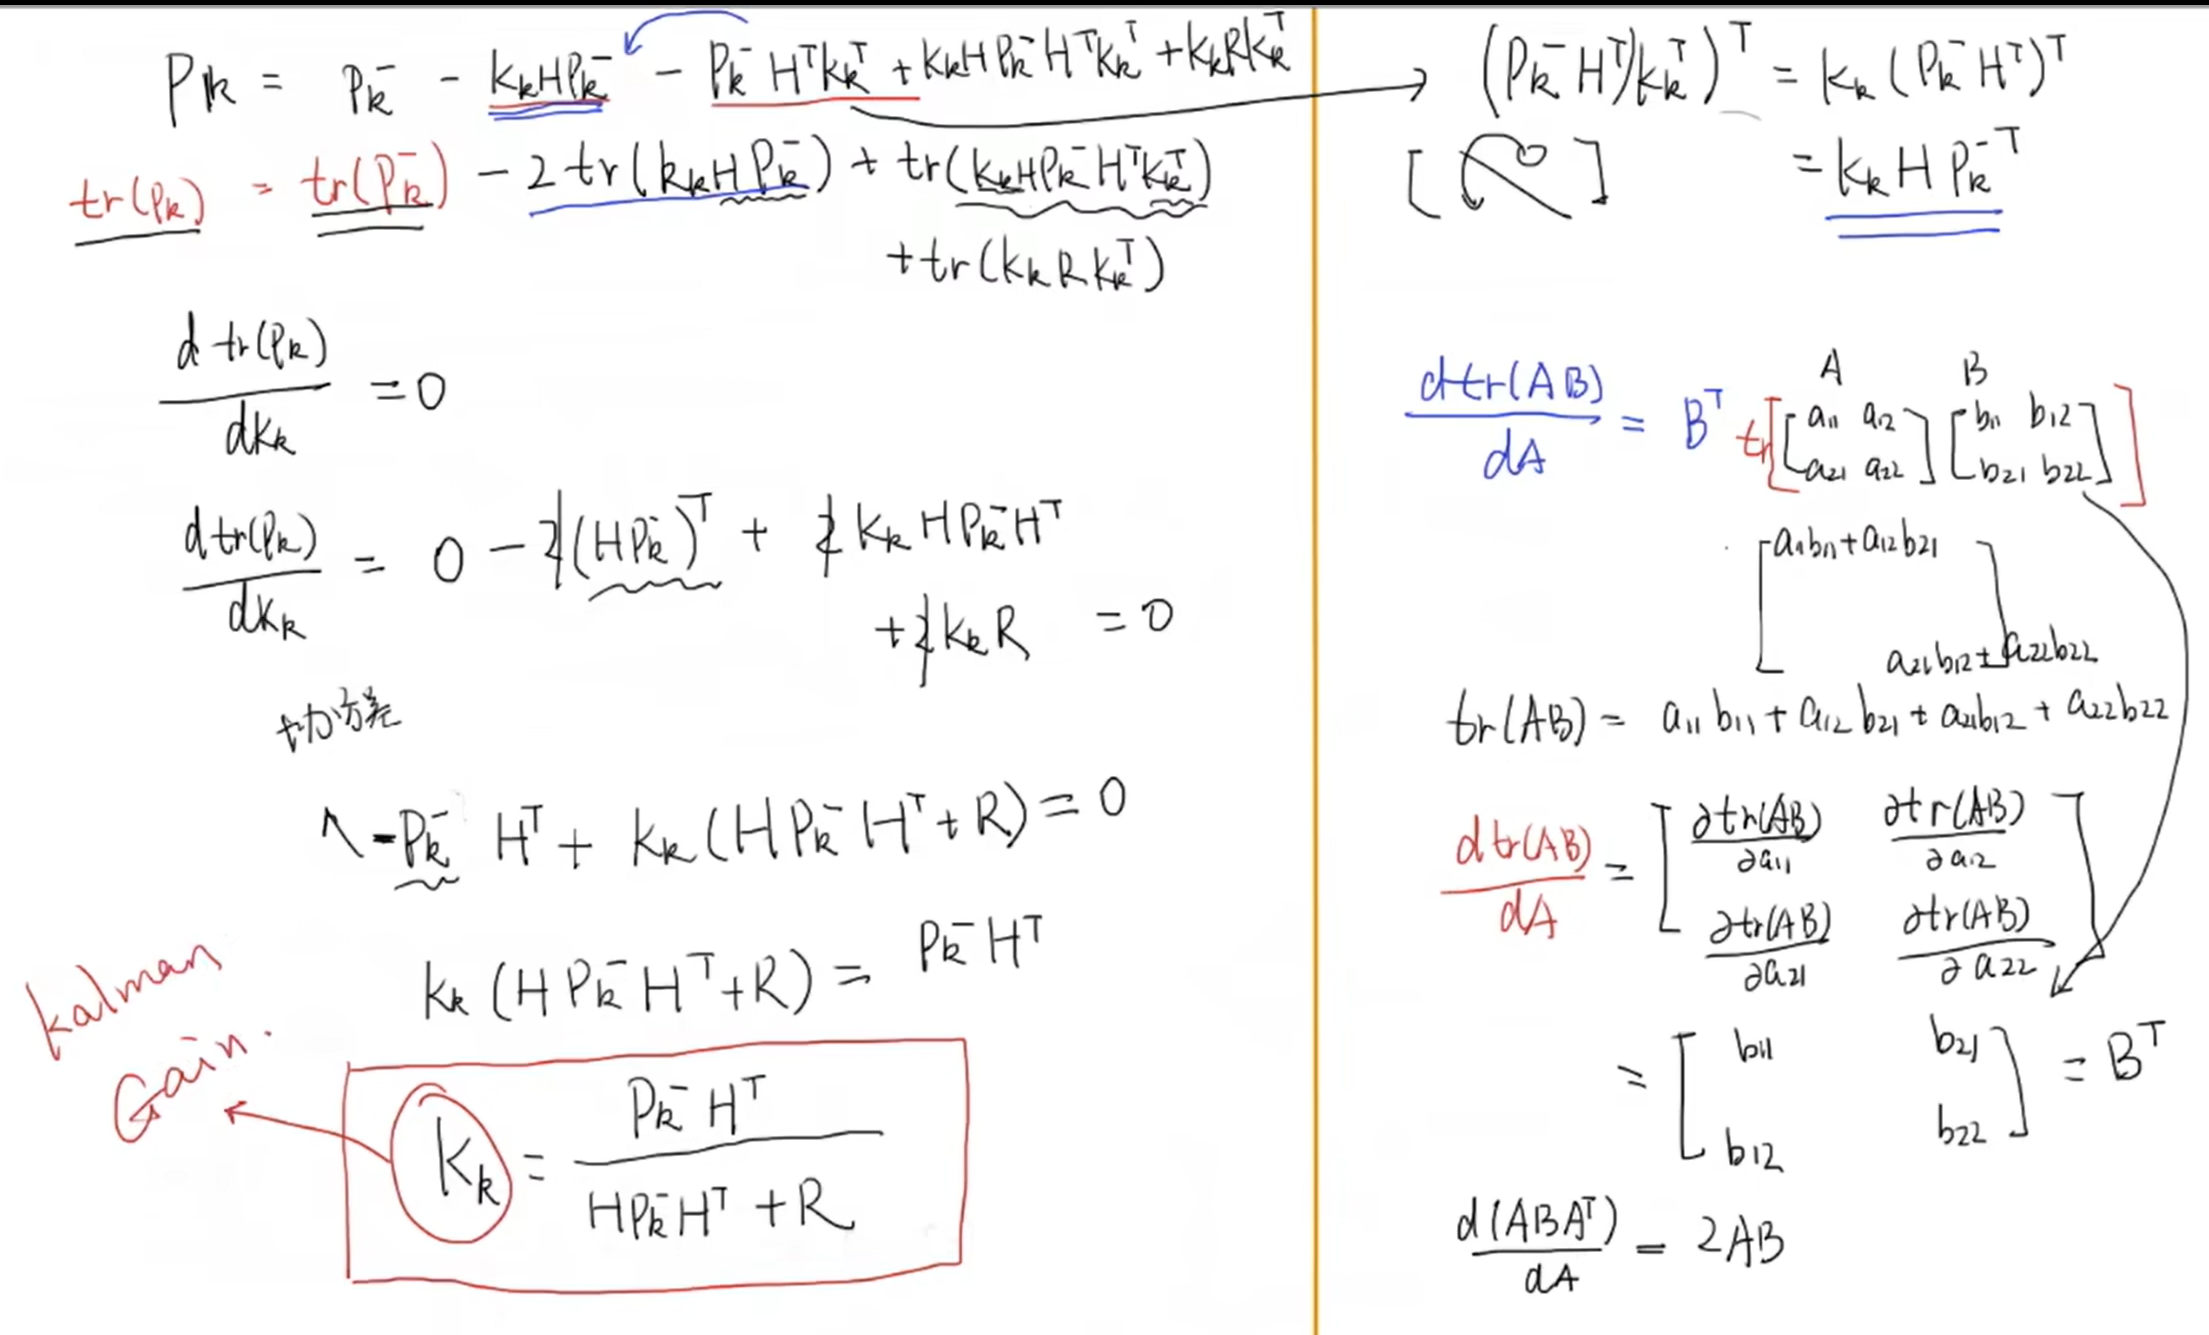 P_k = P_k^- - K_k H P_k^- - P_k^- H^T K_k^T + K_k H P_k^- H^T K_k^T + K_k R K_k^T
tr(P_k) = tr(P_k^-) - 2 tr(K_k H P_k^-) + tr(K_k H P_k^- H^T K_k^T)
+ tr(K_k R K_k^T)
d tr(P_k) / dK_k = 0
d tr(P_k) / dK_k = 0 - 2(H P_k^-)^T + 2 K_k H P_k^- H^T
+ 2 K_k R = 0
协方差
- P_k^- H^T + K_k (H P_k^- H^T + R) = 0
K_k (H P_k^- H^T + R) = P_k^- H^T
kalman
Gain.
K_k = P_k^- H^T / H P_k^- H^T + R
(P_k^- H^T) K_k^T)^T = K_k (P_k^- H^T)^T
= K_k H P_k^-T
A B
d tr(AB) / dA = B^T tr[[a11 a12
a21 a22] [b11 b12
b21 b22]]
[a11b11 + a12b21
a21b12 + a22b22]
tr(AB) = a11 b11 + a12 b21 + a21b12 + a22b22
d tr(AB) / dA = [∂tr(AB)/∂a11 ∂tr(AB)/∂a12
∂tr(AB)/∂a21 ∂tr(AB)/∂a22]
= [b11 b21
b12 b22] = B^T
d(ABA^T) / dA = 2AB